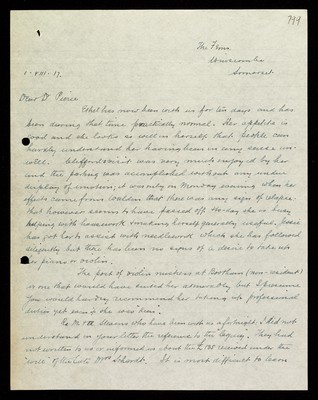 799
The Fern
Winscombe
Somerset
1. VIII. 17.
Dear Dr. Pierce
Ethel has now been with us for ten days and has
been during that time practically normal. Her appetite is
good and she looks so well in herself that people can
hardly understand her having been in any sense un-
well. Clifford's visit was very much enjoyed by her
and the parting was accomplished without any undue
display of emotion; it was only on Monday evening when her
effects came from that there was any sign of relapse.
that however seems to have passed off. To-day she is busy
helping with housework making herself generally useful.
has got her to assist with needlework which she has followed
but there has been no signs of a desire to take up
her piano or violin.
The post of violin mistress at Bootham (non-resident)
is one that would have suited her admirably but I presume
you would hardly recommend her taking up professional
duties yet even if she was keen.
Re Mr & Mrs Stearns who have been with us a fortnight. I did not
understand in your letter the reference to the legacy. They had
not written to us or informed us about the £185 received under the
"will" of the late Mrs Schardt. It is most difficult to learn